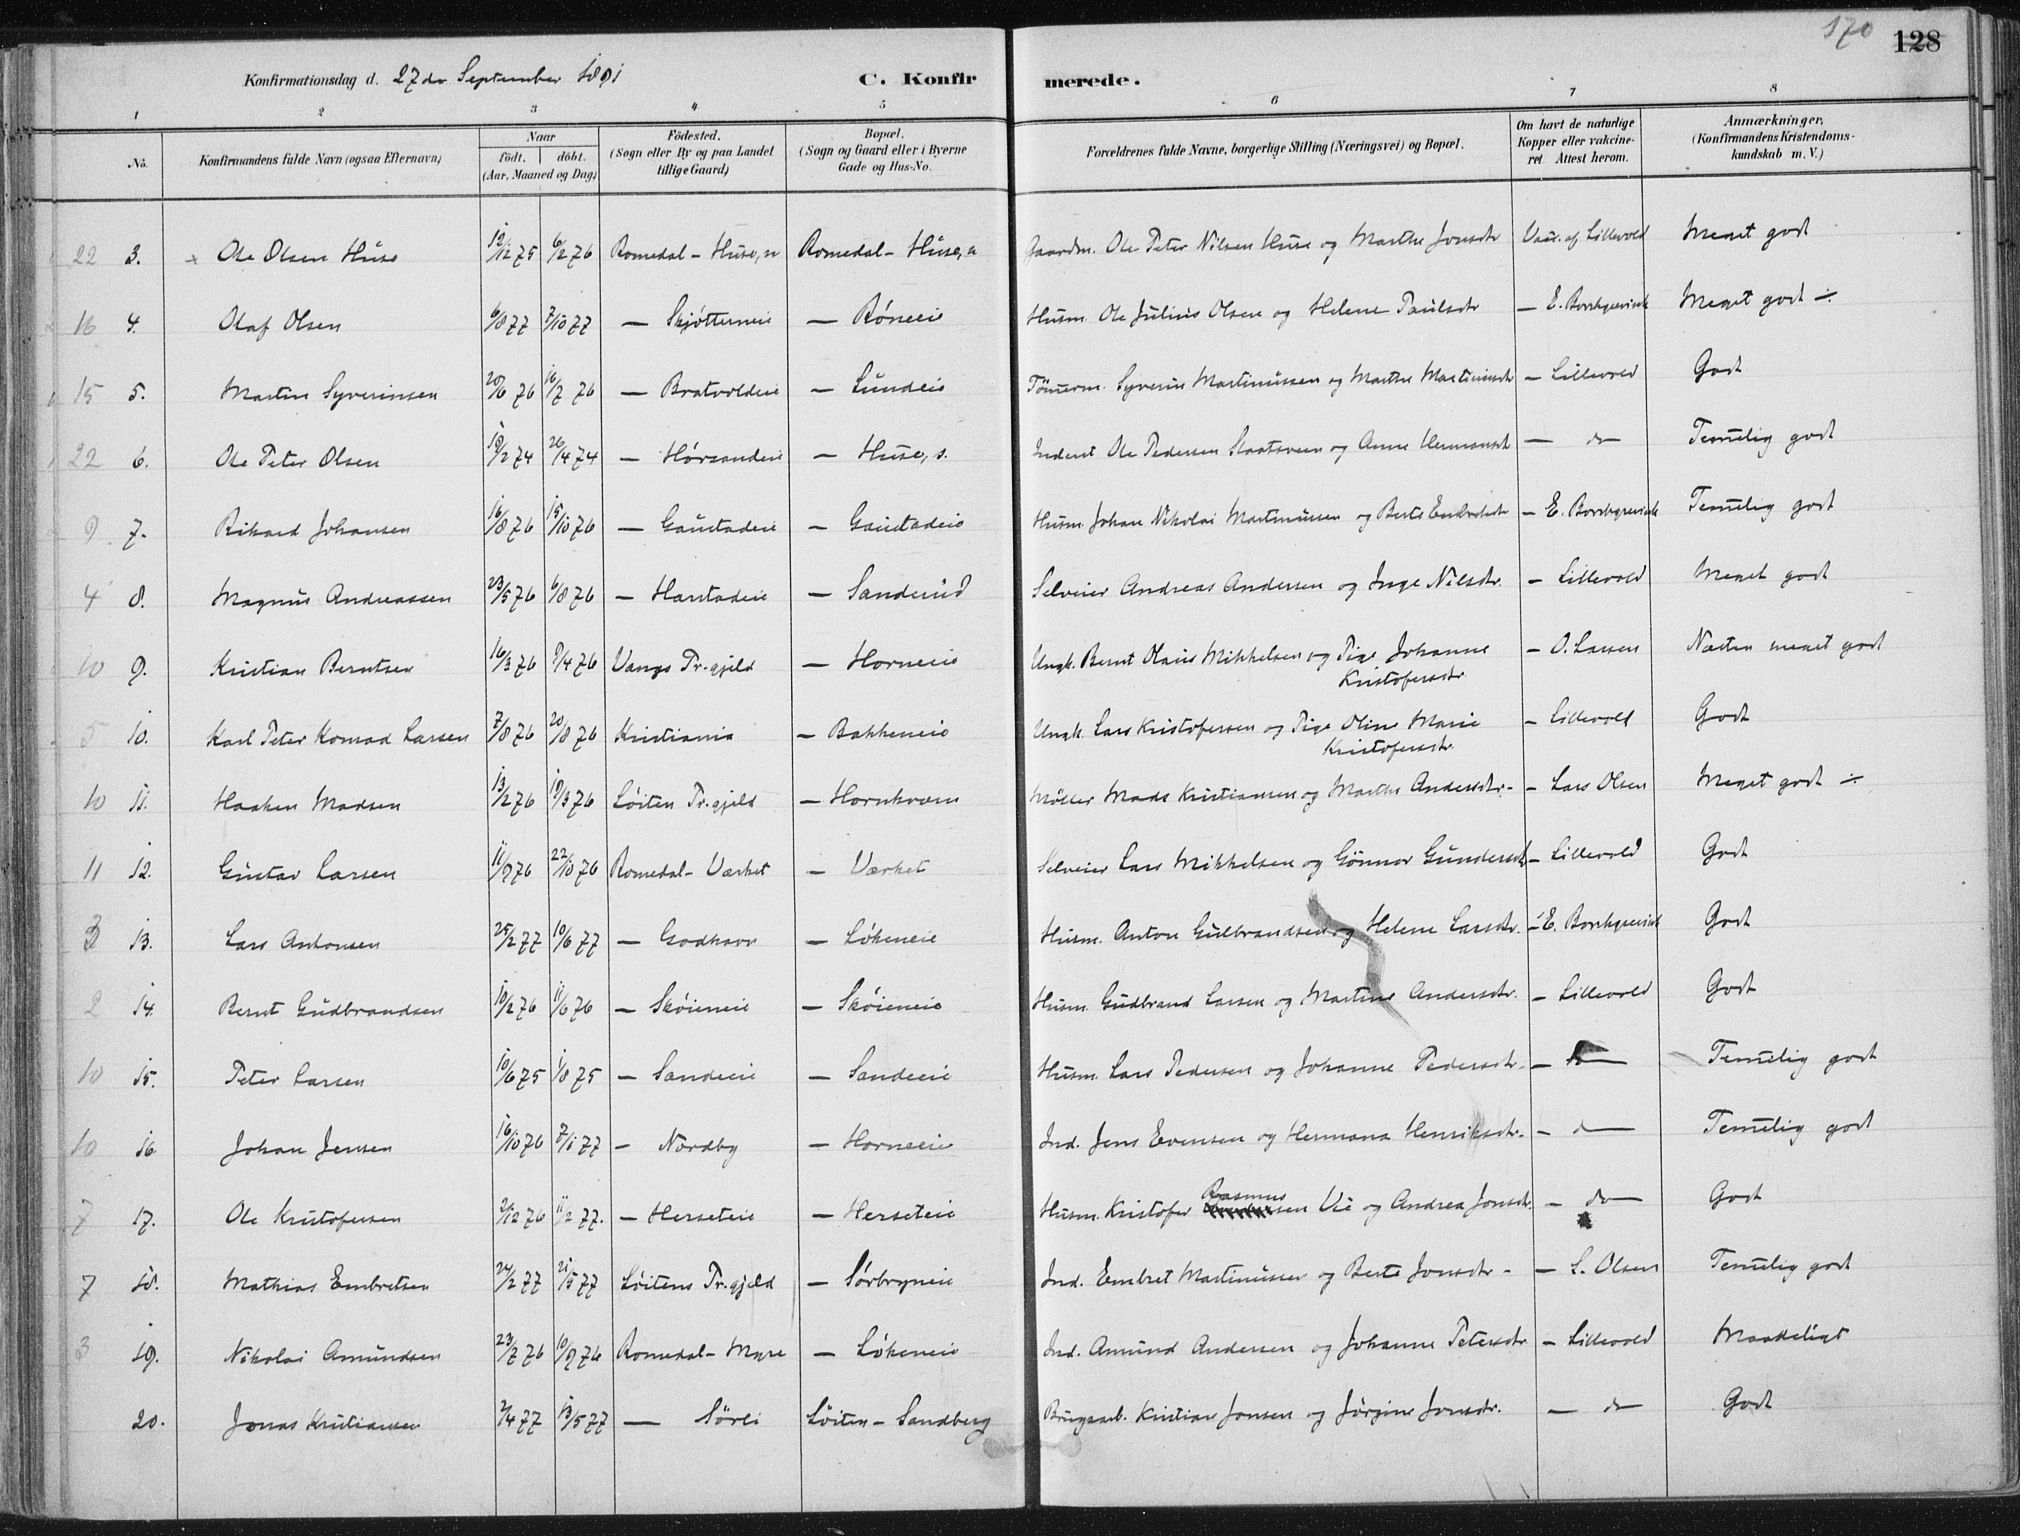 170 128
Konfirmationsdag d. 27de September 1891 C. Konfirmerede.
1 2 3 4 5 6 7 8
No. Konfirmandens fulde Navn (ogsaa Efternavn) Naar födt. döbt. (Aar, Maaned og Dag) Födested. (Sogn eller By og paa Landet tillige Gaard) Bopæl. (Sogn og Gaard eller i Byerne Gade og Hus-No. Forældrenes fulde Navne, borgerlige Stilling (Næringsvei) og Bopæl. Om havt de naturlige Kopper eller vakcineret Attest herom. Anmærkninger. (Konfirmandens Kristendomskundskab m. V.)
22 3. Ole Olsen Huse 12/12 75 6/2 76 Romedal - Huse, n Romedal - Huse, n Gaardm. Ole Peter Nilsen Huse og Marthe Jonsdtr Vac. af Lillevold Meget godt
16 4. Olaf Olsen 6/8 77 7/10 77 — Skjötterneie — Röneeie Husm. Ole Julius Olsen og Helene Paulsdtr — E. Borchgrevink Meget godt ÷
15 5. Martin Syverinsen 20/6 76 16/7 76 — Bratvoldeie — Lundeie Tömerm. Syverin Martinussen og Marthe Martinusdtr — Lillevold Godt
22 6. Ole Peter Olsen 19/2 74 26/4 74 — Hörsandeie — Huse, s. Inderst Ole Pedersen Slaatsveen og Anne Hermansdt — do Temelig godt
9 7. Rikard Johansen 16/8 76 15/10 76 — Gaustadeie — Gaustadeie Husm. Johan Nikolai Martinussen og Berte Embretsdt — E. Borchgrevink Temelig godt
4 8. Magnus Andreassen 23/5 76 6/8 76 — Harstadeie — Sanderud Selveier Andreas Andersen og Inge Nilsdtr. — Lillevold Meget godt
10 9. Kristian Berntsen 16/3 76 9/4 76 Vangs Pr.gjeld — Horneeie Ungk. Bernt Olaus Mikkelsen og Pige Johanne Kristofersdtr — O. Larsen Næsten meget godt
5 10. Karl Peter Konrad Larsen 7/8 76 20/8 76 Kristiania — Bakkeneie Ungk. Lars Kristofersen og Pige Oline Marie Kristofersdtr. — Lillevold Godt
10 11. Haaken Madsen 13/2 76 19/3 76 Löiten Pr.gjeld — Hornkværn Möller Mads Kristiansen og Marthe Andersdtr. — Lars Olsen Meget godt ÷
11 12. Gustav Larsen 11/9 76 22/10 76 Romedal - Værket — Værket Selveier Lars Mikkelsen og Gönnor Gundersdt — Lillevold Godt
3 13. Lars Antonsen 25/2 77 10/6 77 — Godhavn — Lökeneie Husm. Anton Gulbrandsen og Helene Larsdtr. — E. Borchgrevink Godt
2 14. Bernt Gudbrandsen 10/2 76 11/6 76 — Sköieneie — Sköieneie Husm. Gudbrand Larsen og Martine Andersdtr. — Lillevold Godt
10 15. Peter Larsen 10/6 75 1/8 75 — Sandeeie — Sandeeie Husm. Lars Pedersen og Johanne Pedersdtr. — do Temelig godt
10 16 Johan Jensen 16/10 76 7/1 77 — Nordby — Horneeie Ind. Jens Evensen og Hermana Henriksdtr. — do Temelig godt
7 17. Ole Kristofersen 2/12 76 11/2 77. — Herseteie — Herseteie Husm. Kristofer Rasmussen Vie og Andrea Jonsdtr. — do Godt
7 18. Mathias Embretsen 24/2 77 21/5 77 Löitens Pr.gjeld — Sörbryneie Ind. Embret Martinussen og Berte Jonsdtr - — L. Olsen Temelig godt
3 19. Nikolai Amundsen 23/7 76 10/9 76 Romedal - Myre — Lökeneie Ind. Amund Andersen og Johanne Petersdtr — Lillevold Maadeligt
20. Jonas Kristiansen 2/4 77 13/5 77 — Sörli Löiten - Sandberg Brugsarb. Kristian Jonsen og Jörgine Jonsdtr. — do Godt